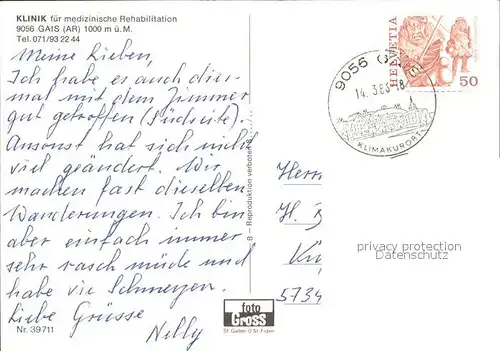 KLINIK für medizinische Rehabilitation
9056 GAIS (AR) 1000 m ü.M.
Tel. 071/93 22 44
Meine Lieben,
Ich habe es auch dies-
mal mit dem Zimmer
gut getroffen (Südseite).
Ansonst hat sich nicht
viel geändert. Wir
machen fast dieselben
Wanderungen. Ich bin
aber einfach immer
sehr rasch müde und
habe viel Schmerzen.
Liebe Grüsse
Nelly
Nr. 39711
B – Reproduktion verboten
foto
Gross
St. Gallen
HELVETIA
50
9056 GAIS
14.3.83-18
KLIMAKURORT
Herrn
H.
5734
privacy protection
Datenschutz